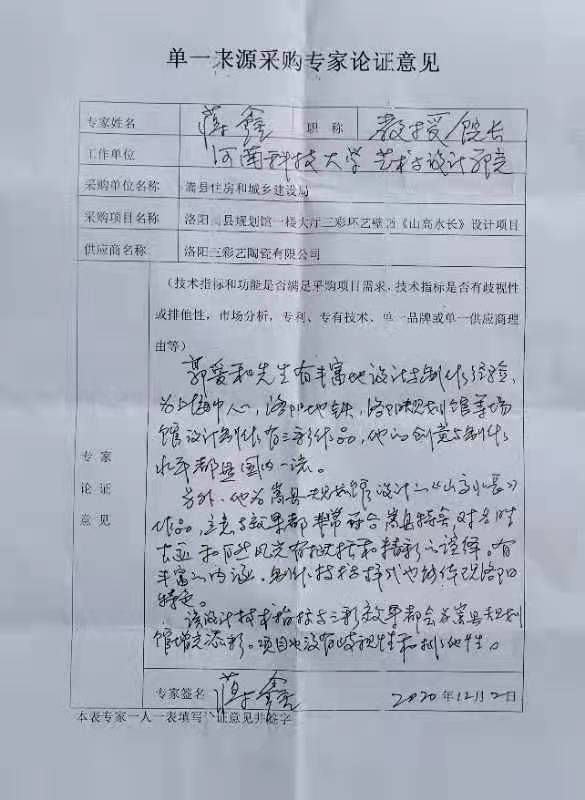 单一来源采购专家论证意见
专家姓名 鑫 职称 教授 院长
工作单位 河南科技大学艺术与设计学院
采购单位名称 嵩县住房和城乡建设局
采购项目名称 洛阳县规划馆一楼大厅三彩环艺壁《山高水长》设计项目
供应商名称 洛阳三彩艺陶瓷有限公司
(技术指标和功能是否满足采购项目需求,技术指标是否有歧视性
或排他性,市场分析,专利、专有技术、单一品牌或单一供应商理
由等)
专家论证意见
郭爱和先生有丰富的设计与制作经验,
为上海中心,洛阳地铁,洛阳规划馆等场
馆设计制作有三彩作品,他的创意与制作
水平都是国内一流。
另外,他为嵩县规划馆设计的《山高水长》
作品,立意与效果都非常符合嵩县特色,对
和自然风光有概括和精彩的诠释。有
丰富的内涵,制作技术与样式也能体现洛阳
特色。
该设计技术指标与三彩效果都会为嵩县规划
馆增光添彩。项目也没有歧视性和排他性。
专家签名 鑫 2020年12月2日
本表专家一人一表填写 证意见并签字